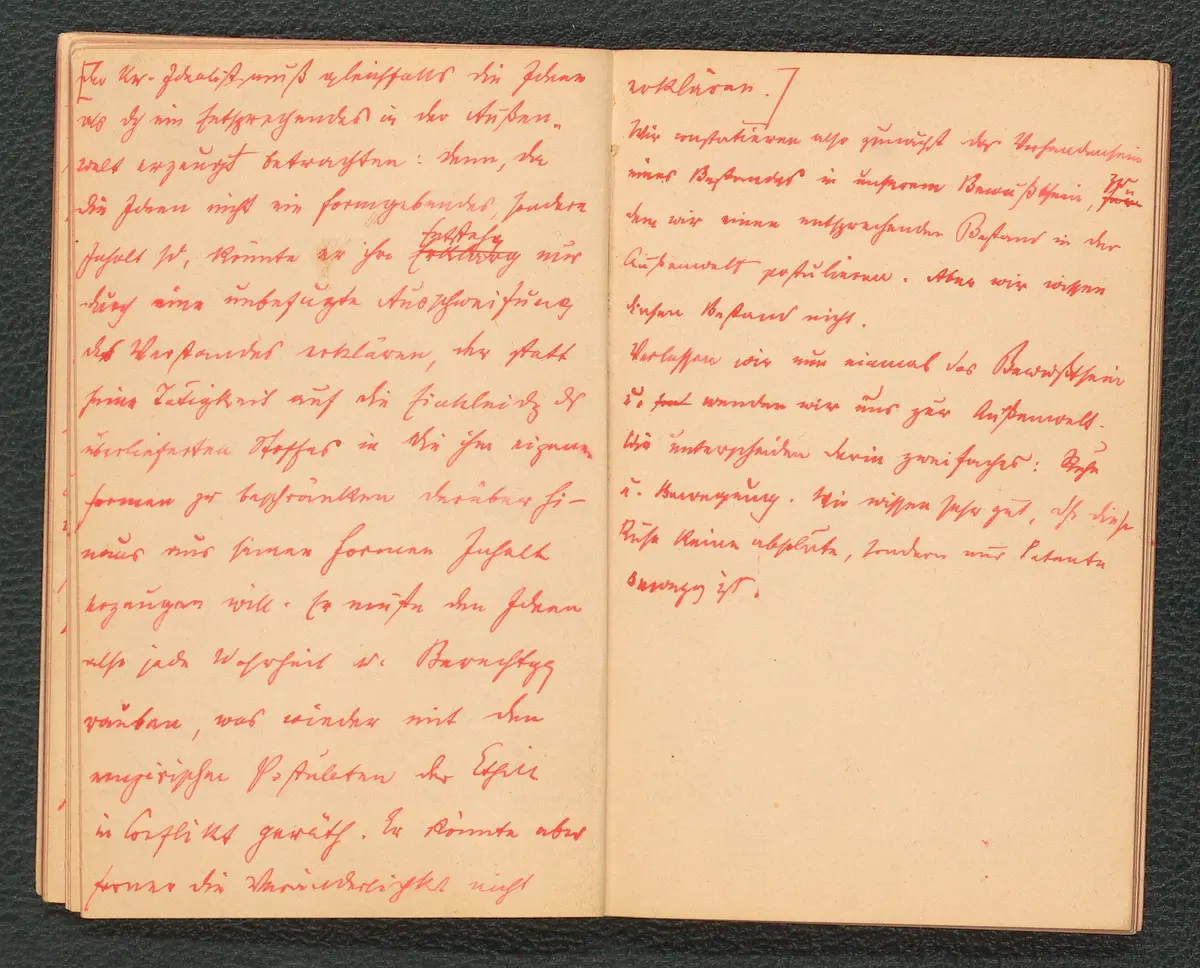 [Der Ur-Idealist muß gleichfalls die Ideen
als dch ein Entsprechendes in der Außen-
welt erzeugt betrachten: denn, da
die Ideen nicht ein formgebendes, sondern
Inhalt sd, könnte er ihre Entstehg Erklärung nur
durch eine unbefugte Ausschweifung
des Verstandes erklären, der statt
seine Tätigkeit auf die Einkleidg des
überlieferten Stoffes in die ihm eigenen
Formen zu beschränken darüber hi-
naus aus seinen Formen Inhalt
erzeugen will. Er müßte den Ideen
also jede Wahrheit u. Berechtgg
rauben, was wieder mit den
empirischen Postulaten der Ethik
in Conflikt geräth. Er könnte aber
ferner die Veränderlichkt nicht
erklären.]
Wir constatieren also zunächst das Vorhandensein
eines Bestandes in unserem Bewußtsein, zu
dem wir einen entsprechenden Bestand in der
Außenwelt postulieren. Aber wir wissen
diesen Bestand nicht.
Verlassen wir nun einmal das Bewußtsein
u. wenden wir uns zur Außenwelt.
Wir unterscheiden darin zweifaches: Ruhe
u. Bewegung. Wir wissen sehr gut, dß diese
Ruhe keine absolute, sondern nur latente
Bewegg ist.